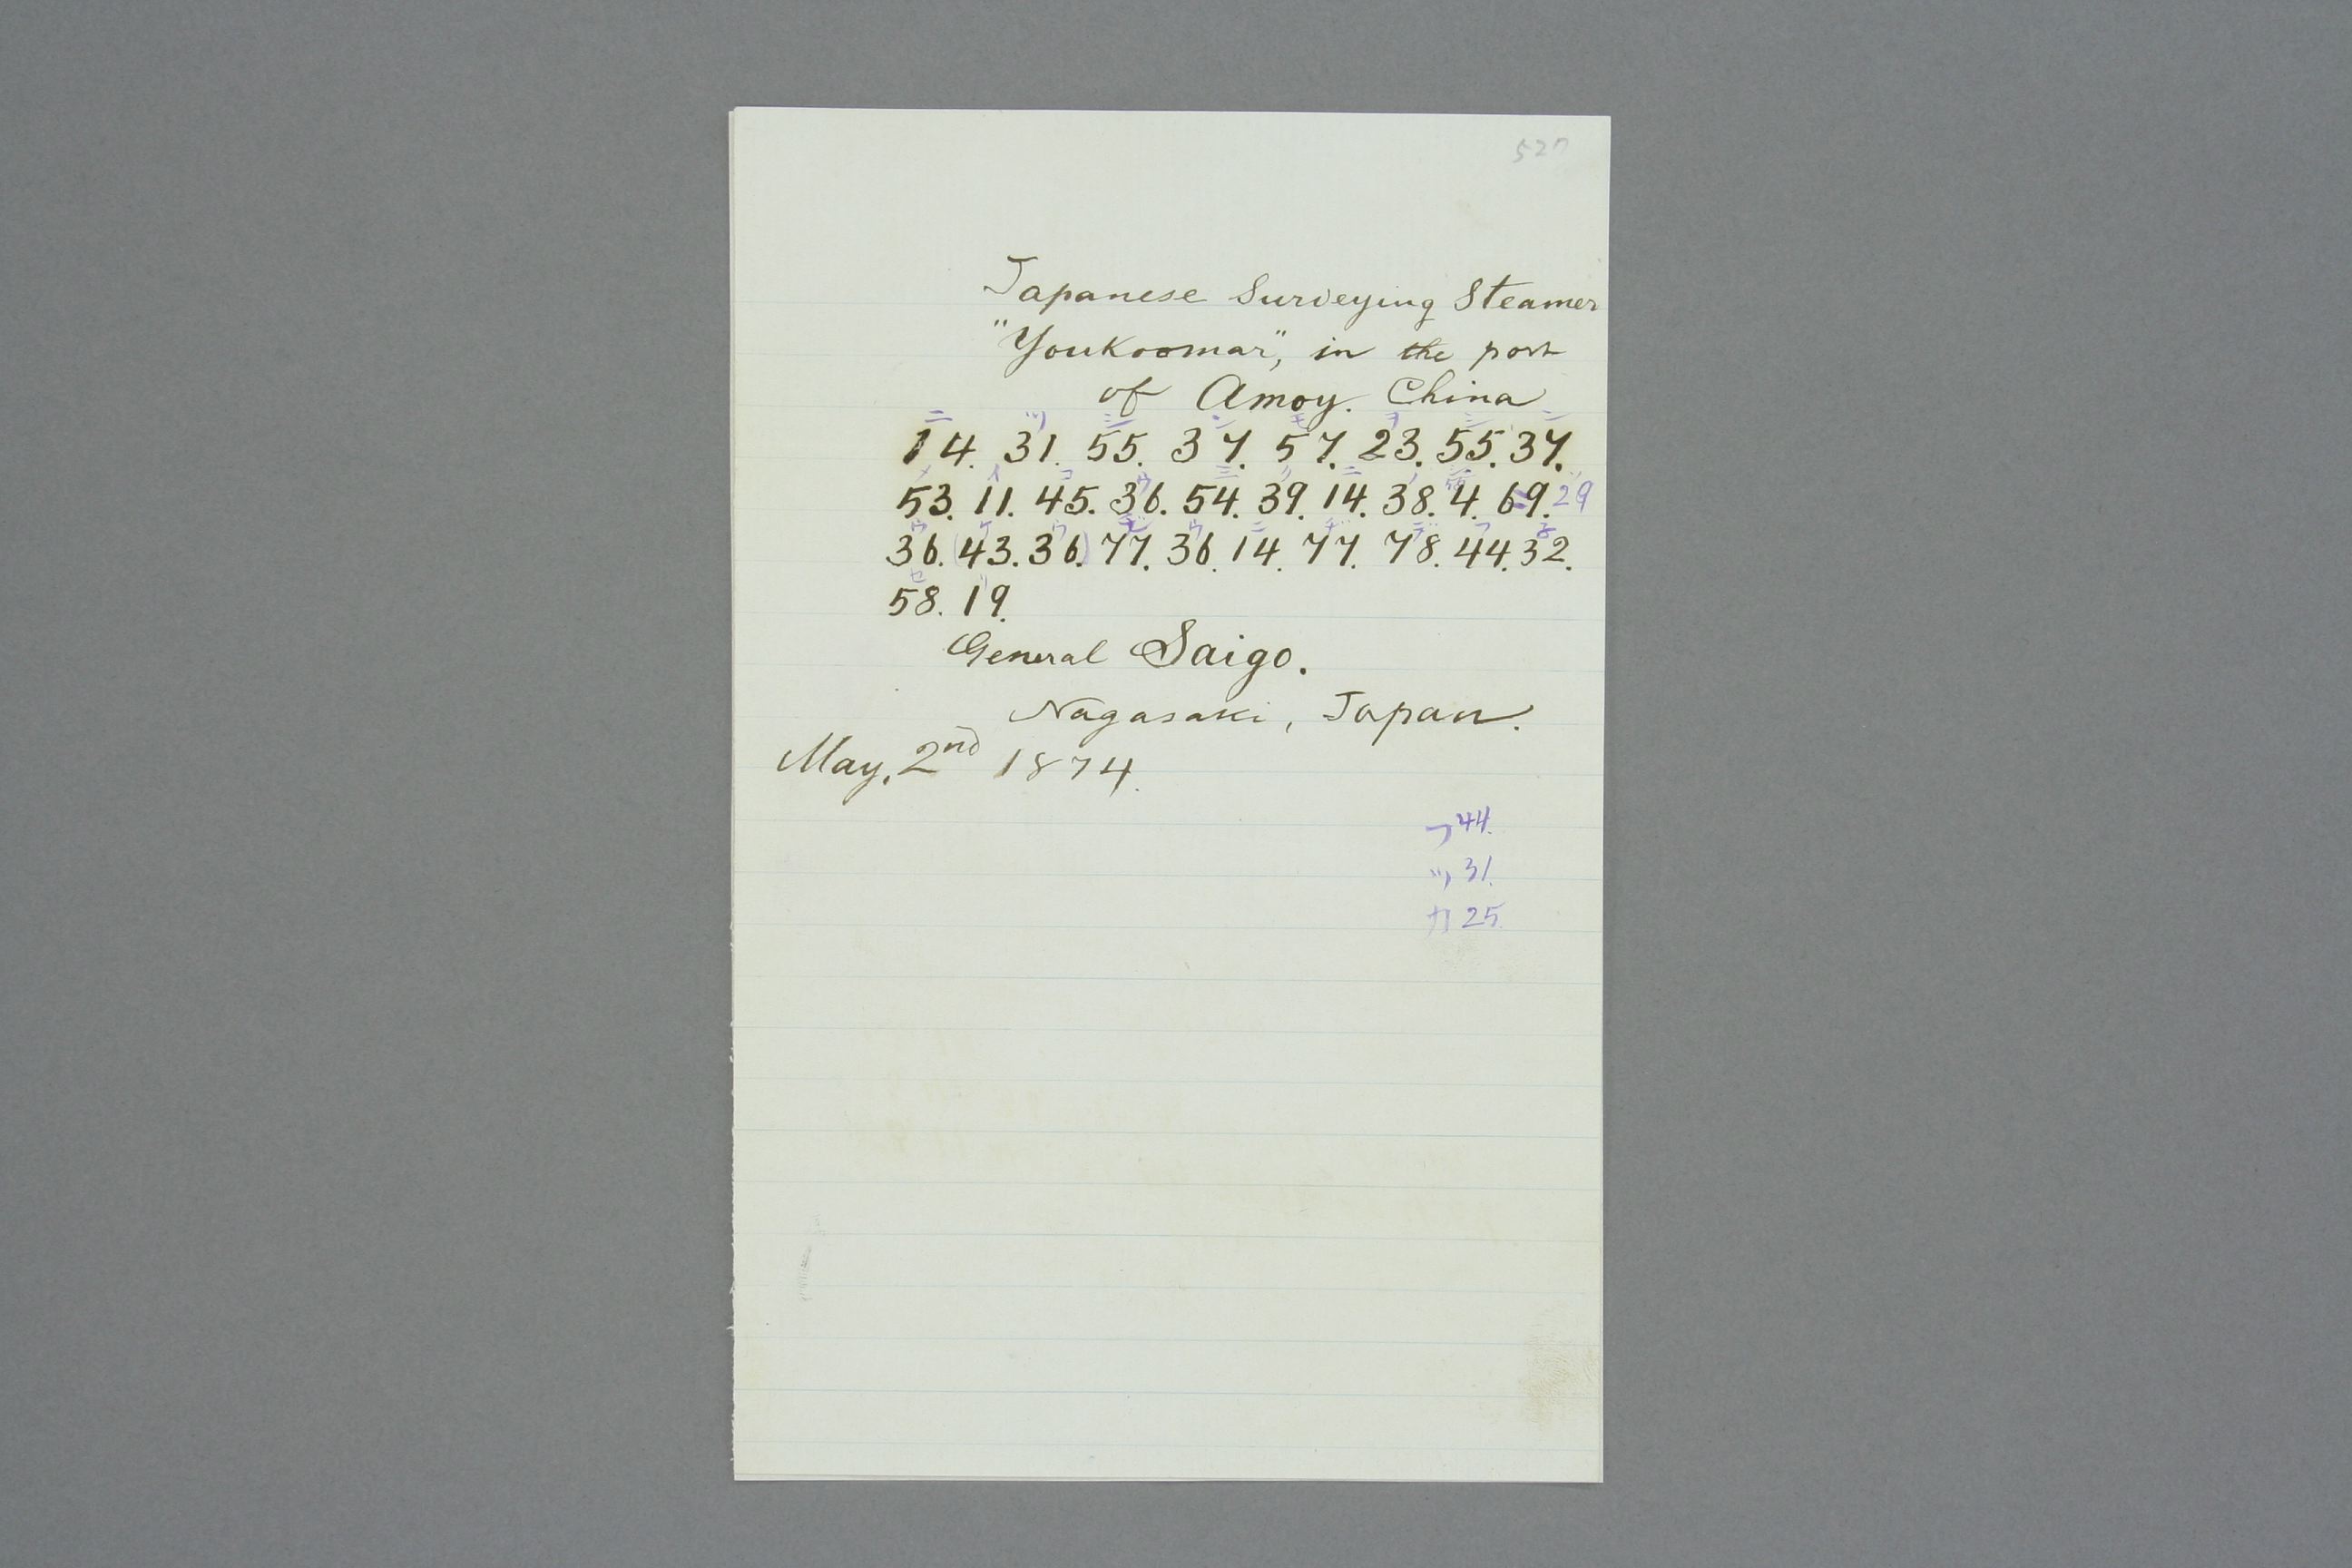 527
Japanese Surveying Steamer
"Youkoomar", in the port
of Amoy. China
14. 31. 55. 37. 57. 23. 55. 37.
53. 11. 45. 36. 54. 39. 14. 38. 4. 69. 29
36. (43. 36.) 77. 36. 14. 77. 78. 44. 32.
58. 19.
General Saigo.
Nagasaki, Japan.
May, 2nd 1874.
フ 44.
ツ 31.
カ 25.